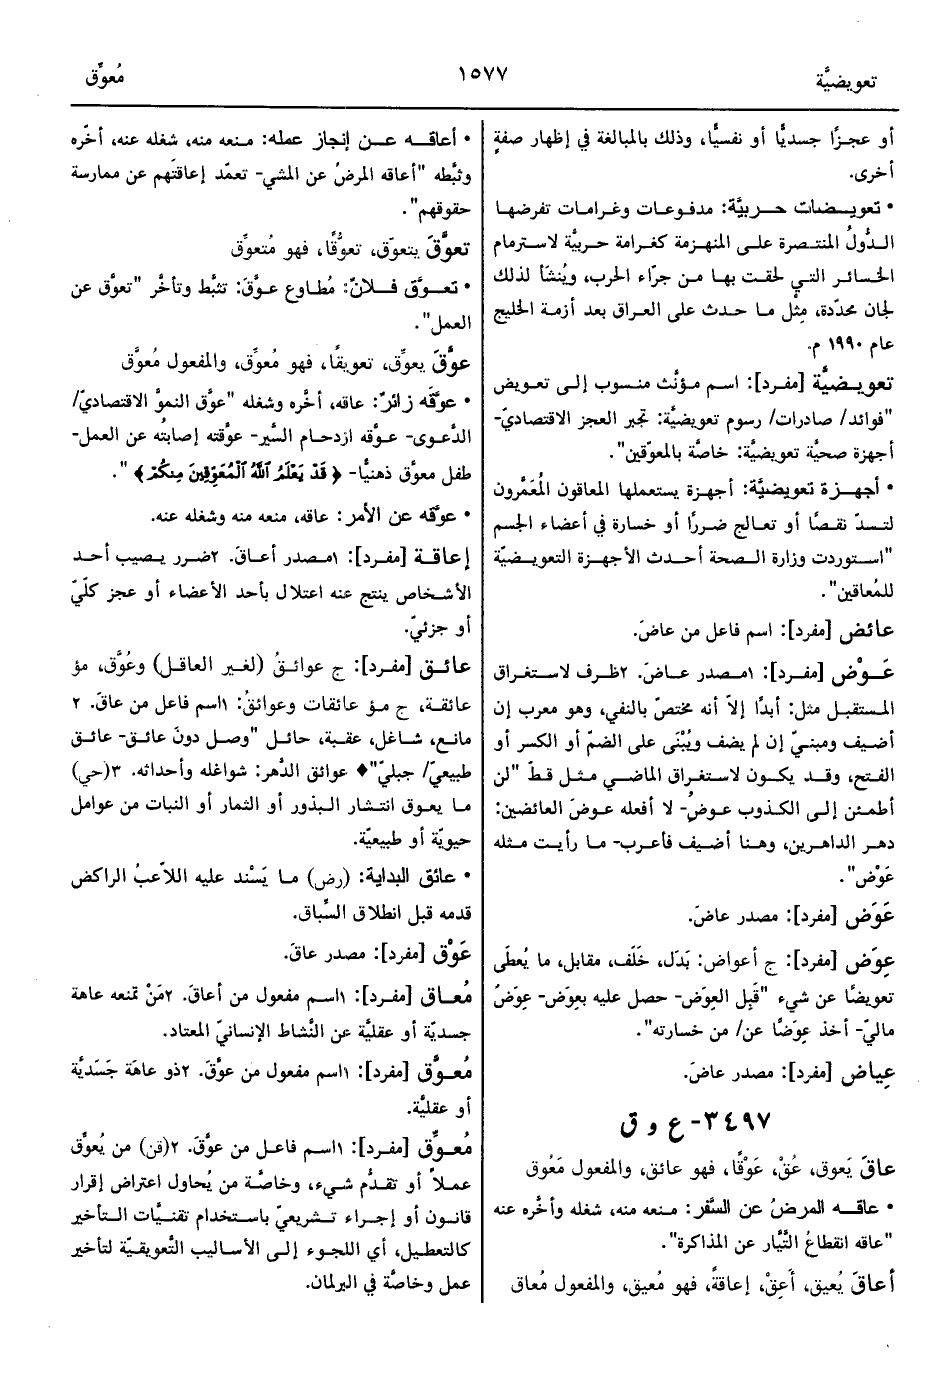 تعويضيَّة
١٥٧٧
مُعوِّق
أو عجزًا جسديًّا أو نفسيًّا، وذلك بالمبالغة في إظهار صفةٍ
أخرى.
• تعويضات حربيَّة: مدفوعات وغرامات تفرضها
الدُّولُ المنتصرة على المنهزمة كغرامة حربيَّة لاسترمام
الخسائر التي لحقت بها من جرّاء الحرب، ويُنشَأ لذلك
لجان محدّدة، مِثْل ما حدث على العراق بعد أزمة الخليج
عام ١٩٩٠ م.
تعويضيَّة [مفرد]: اسم مؤنَّث منسوب إلى تعويض
"فوائد/ صادرات/ رسوم تعويضيَّة: تجبر العجز الاقتصاديّ-
أجهزة صحيَّة تعويضيَّة: خاصَّة بالمعوّقين".
• أجهزة تعويضيَّة: أجهزة يستعملها المعاقون المُعَمَّرون
لتسدّ نقصًا أو تعالج ضررًا أو خسارة في أعضاء الجسم
"استوردت وزارة الصحة أحدث الأجهزة التعويضيَّة
للمُعاقين".
عائض [مفرد]: اسم فاعل من عاضَ.
عَوْض [مفرد]: ١مصدر عاضَ. ٢ظرف لاستغراق
المستقبل مثل: أبدًا إلاّ أنه مختصّ بالنفي، وهو معرب إن
أضيف ومبنيّ إن لم يضف ويُبْنَى على الضمّ أو الكسر أو
الفتح، وقد يكون لاستغراق الماضي مثل قطّ "لن
أطمئن إلى الكذوب عوضُ- لا أفعله عوضَ العائضين:
دهر الداهرين، وهنا أضيف فأعرب- ما رأيت مثله
عَوْض".
عَوَض [مفرد]: مصدر عاضَ.
عِوَض [مفرد]: ج أعواض: بَدَل، خَلَف، مقابل، ما يُعطَى
تعويضًا عن شيء "قَبِل العِوَض- حصل عليه بعِوَض- عِوَضٌ
ماليّ- أخذ عِوَضًا عن/ من خسارته".
عِياض [مفرد]: مصدر عاضَ.
٣٤٩٧- ع و ق
عاقَ يَعوق، عُقْ، عَوْقًا، فهو عائق، والمفعول مَعُوق
• عاقه المرضُ عن السَّفر: منعه منه، شغله وأخَّره عنه
"عاقه انقطاعُ التَّيَّار عن المذاكرة".
أعاقَ يُعيق، أَعِقْ، إعاقةً، فهو مُعيق، والمفعول مُعاق
• أعاقه عن إنجاز عمله: منعه منه، شغله عنه، أخّره
وثبَّطه "أعاقه المرضُ عن المشي- تعمّد إعاقتَهم عن ممارسة
حقوقهم".
تعوَّقَ يتعوّق، تعوُّقًا، فهو مُتعوِّق
• تعوَّق فلانٌ: مُطاوع عوَّقَ: تثبَّط وتأخَّر "تعوَّق عن
العمل".
عوَّقَ يعوِّق، تعويقًا، فهو مُعوِّق، والمفعول مُعوَّق
• عوَّقَه زائرٌ: عاقه، أخَّره وشغله "عوَّق النموَّ الاقتصاديّ/
الدَّعوى- عوَّقه ازدحام السَّير- عوَّقته إصابتُه عن العمل-
طفل معوَّق ذهنيًّا- ﴿قَدْ يَعْلَمُ اللهُ الْمُعَوِّقِينَ مِنكُمْ﴾ ".
• عوَّقه عن الأمر: عاقه، منعه منه وشغله عنه.
إعاقة [مفرد]: ١مصدر أعاقَ. ٢ضرر يصيب أحد
الأشخاص ينتج عنه اعتلال بأحد الأعضاء أو عجز كلّيّ
أو جزئيّ.
عائق [مفرد]: ج عوائقُ (لغير العاقل) وعُوَّق، مؤ
عائقة، ج مؤ عائقات وعوائقُ: ١اسم فاعل من عاقَ. ٢
مانع، شاغل، عقبة، حائل "وصل دونَ عائق- عائق
طبيعيّ/ جبليّ"♦ عوائق الدَّهر: شواغله وأحداثه. ٣(حي)
ما يعوق انتشار البذور أو الثمار أو النبات من عوامل
حيويّة أو طبيعيّة.
• عائق البداية: (رض) ما يَسْند عليه اللاّعبُ الراكض
قدمه قبل انطلاق السِّباق.
عَوْق [مفرد]: مصدر عاقَ.
مُعاق [مفرد]: ١اسم مفعول من أعاقَ. ٢مَنْ تمنعه عاهة
جسديّة أو عقليَّة عن النَّشاط الإنسانيّ المعتاد.
مُعوَّق [مفرد]: ١اسم مفعول من عوَّقَ. ٢ذو عاهَة جَسَديَّة
أو عقليَّة.
مُعوِّق [مفرد]: ١اسم فاعل من عوَّقَ. ٢(قن) من يُعوِّق
عملاً أو تقدُّم شيء، وخاصَّة من يُحاول اعتراض إقرار
قانون أو إجراء تشريعيّ باستخدام تقنيَّات التأخير
كالتعطيل، أي اللجوء إلى الأساليب التَّعويقيَّة لتأخير
عمل وخاصَّة في البرلمان.